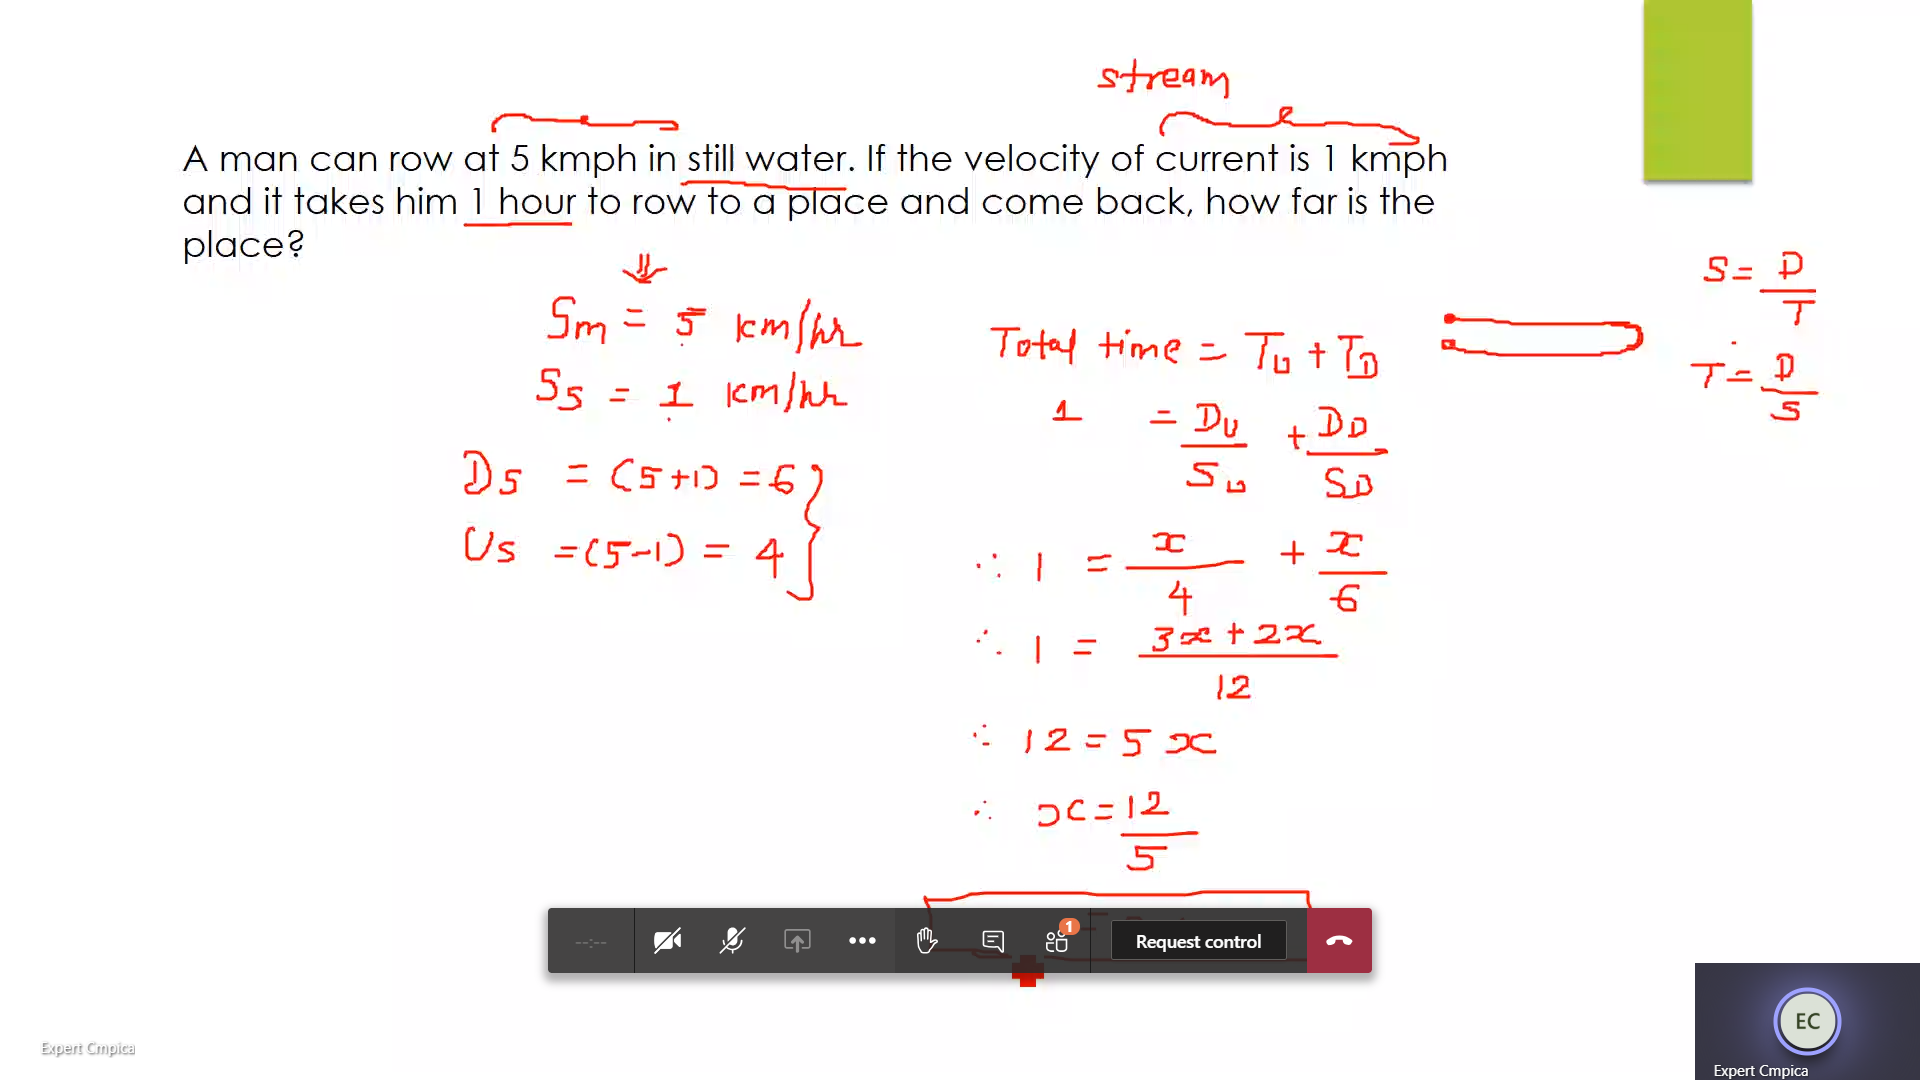 stream
A man can row at 5 kmph in still water. If the velocity of current is 1 kmph
and it takes him 1 hour to row to a place and come back, how far is the
place?
Sm = 5 km/hr
Ss = 1 km/hr
Ds = (5+1) = 6
Us = (5-1) = 4
Total time = TU + TD
1 = DU/SU + DD/SD
∴ 1 = x/4 + x/6
∴ 1 = 3x + 2x/12
∴ 12 = 5x
∴ x = 12/5
S = D/T
∴ T = D/S
--:--
1
Request control
EC
Expert Cmpica
Expert Cmpica